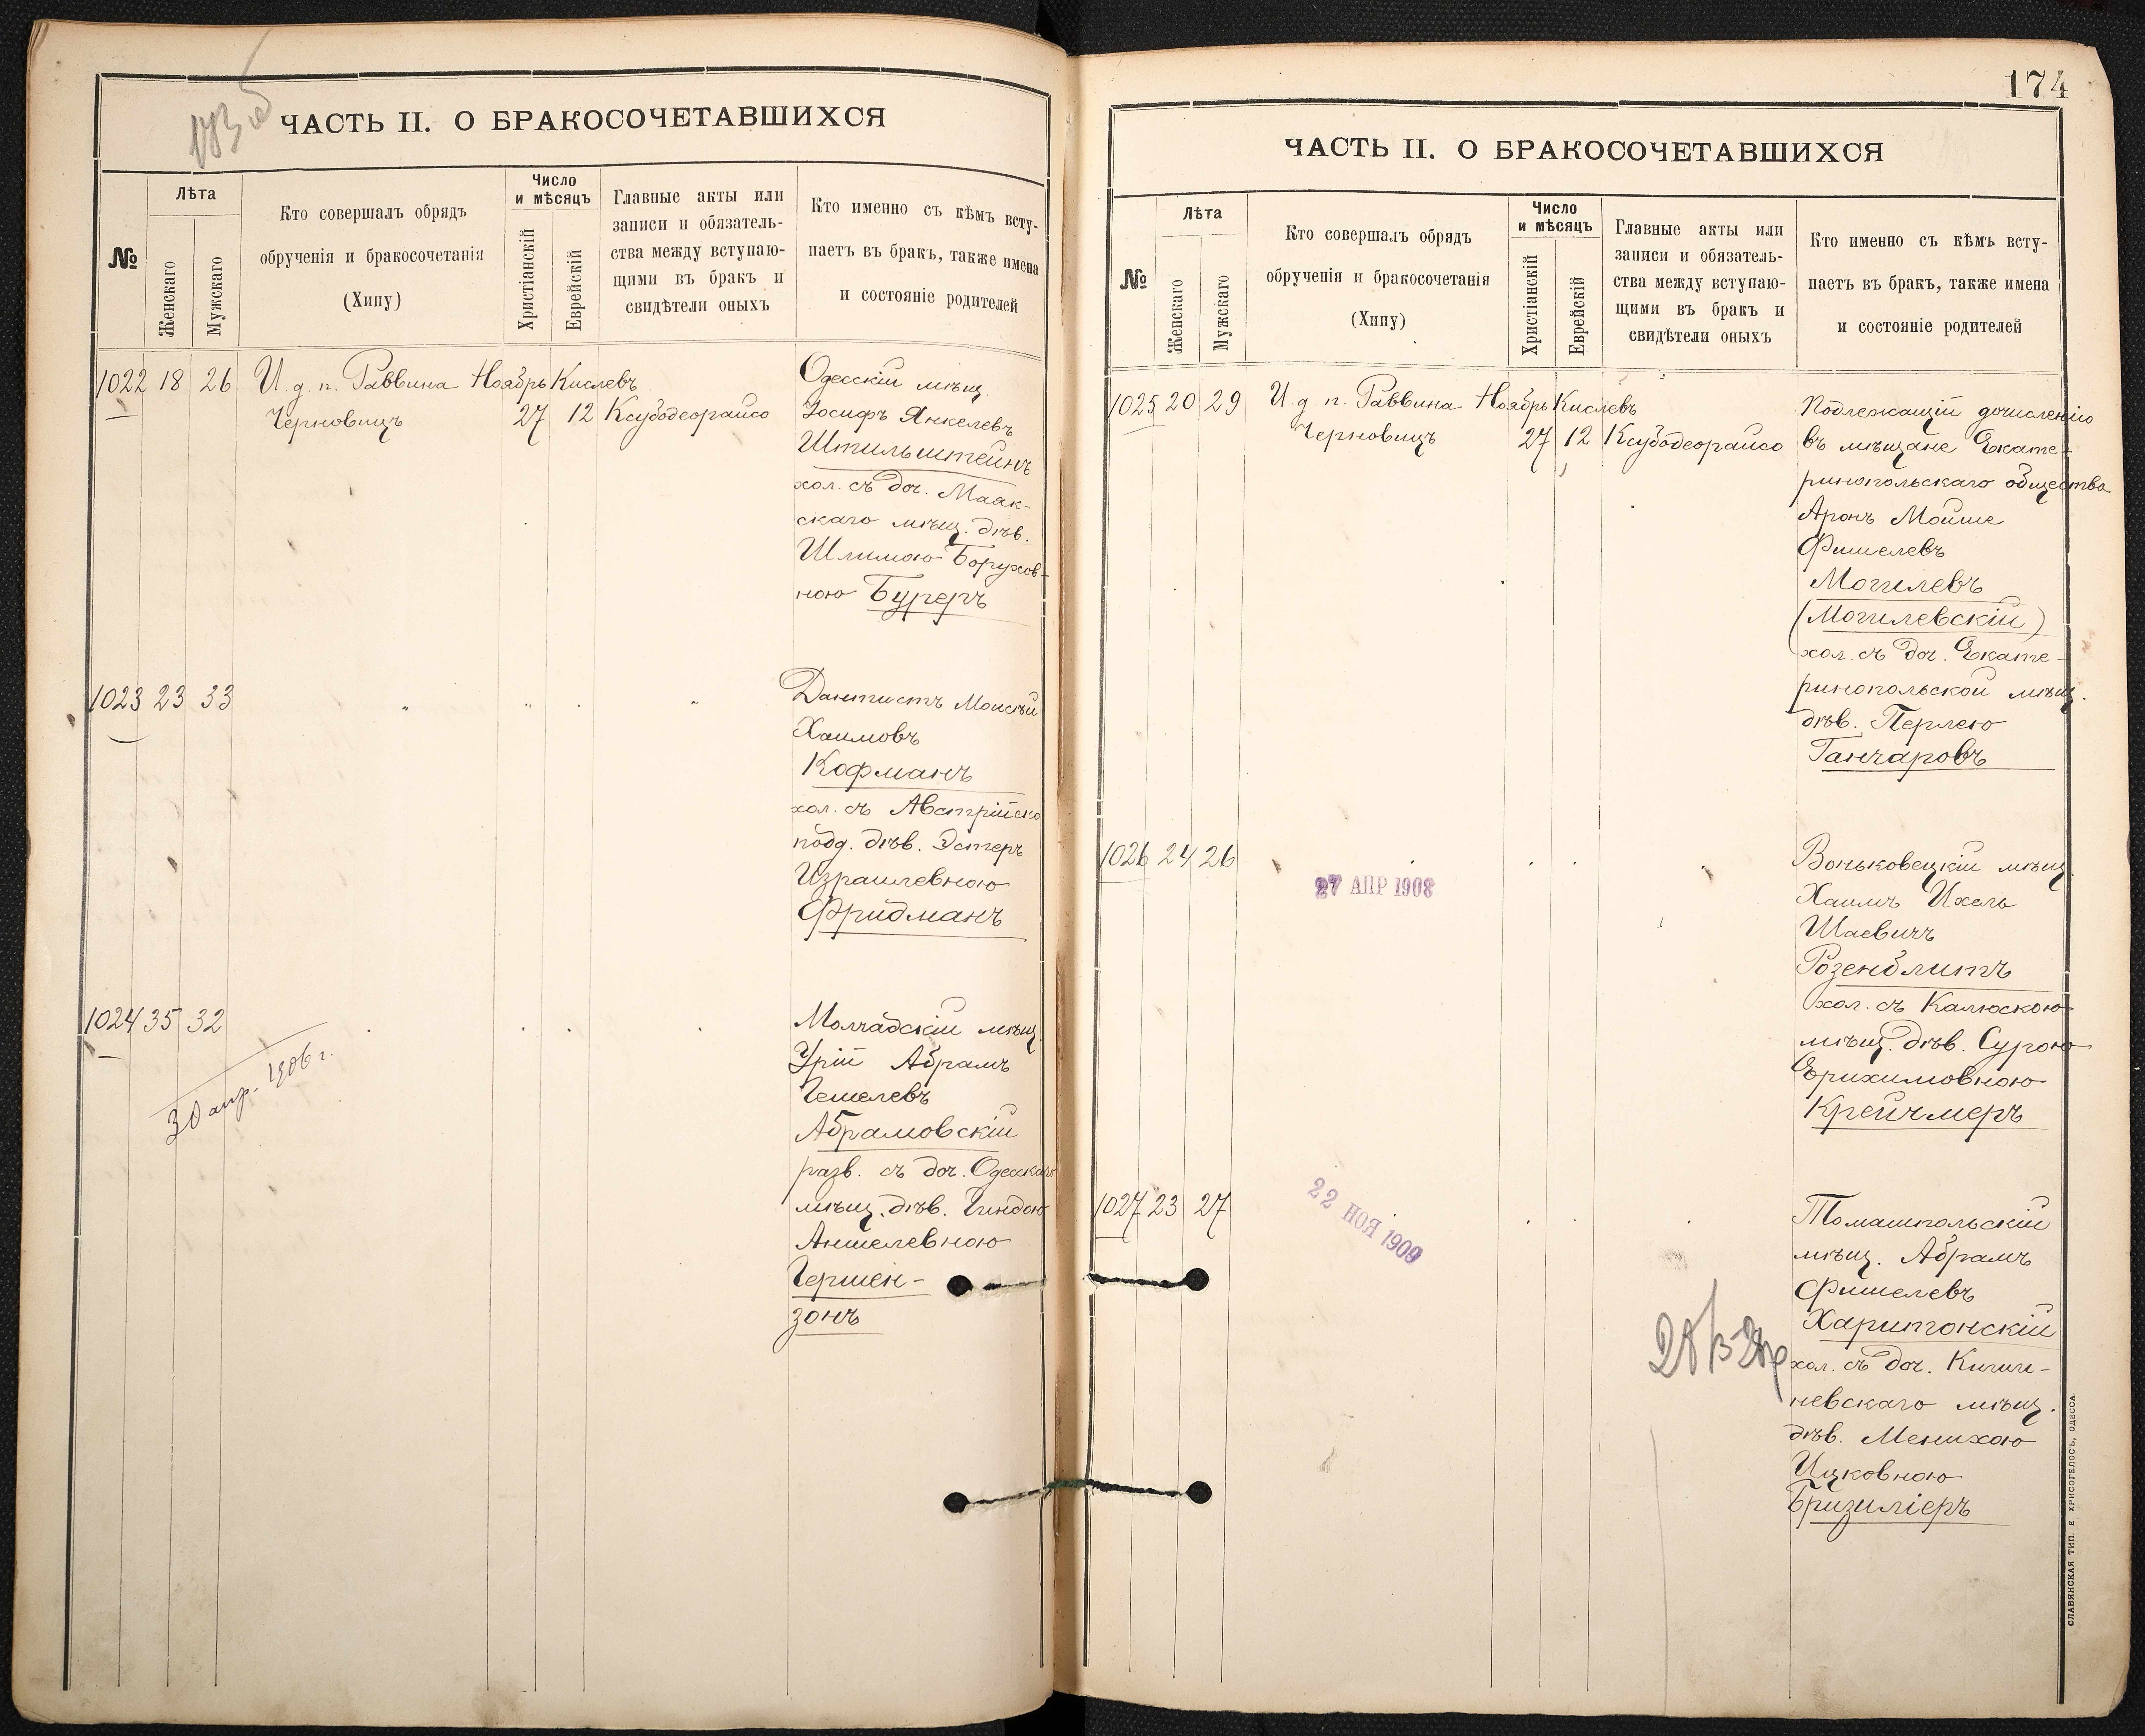 ЧАСТЬ II. О БРАКОСОЧЕТАВШИХСЯ
№
Лѣта
Женскаго
Мужскаго
Кто совершалъ обрядъ
обрученія и бракосочетанія
(Хипу)
Число
и мѣсяцъ
Христіанскій
Еврейскій
Главные акты или
записи и обязатель-
ства между вступаю-
щими въ бракъ и
свидѣтели оныхъ
Кто именно съ кѣмъ всту-
паетъ въ бракъ, также имена
и состояніе родителей
1022 18 26 И. д. п. Раввина Ноябрь Кислевъ
Черновицъ 27 12 Ксубодеорайсо
Одесскій мѣщ.
Іосифъ Янкелевъ
Штильштейнъ
хол. съ доч. Маяк-
скаго мѣщ. дѣв.
Шлимою Борухов-
ною Буреръ
1023 23 33 " " " "
Дантистъ Моисѣй
Хаимовъ
Кофманъ
хол. съ Австрійско
подд. дѣв. Эстеръ
Израилевною
Фридманъ
1024 35 32
30 апр. 1906 г.
Молчадскій мѣщ.
Урій Абрамъ
Гешелевъ
Абрамовскій
разв. съ доч. Одесскаго
мѣщ. дѣв. Гиндою
Аншелевною
Гершен-
зонъ
174
ЧАСТЬ II. О БРАКОСОЧЕТАВШИХСЯ
№
Лѣта
Женскаго
Мужскаго
Кто совершалъ обрядъ
обрученія и бракосочетанія
(Хипу)
Число
и мѣсяцъ
Христіанскій
Еврейскій
Главные акты или
записи и обязатель-
ства между вступаю-
щими въ бракъ и
свидѣтели оныхъ
Кто именно съ кѣмъ всту-
паетъ въ бракъ, также имена
и состояніе родителей
1025 20 29 И. д. п. Раввина Ноябрь Кислевъ
Черновицъ 27 12 Ксубодеорайсо
Подлежащій дочисленію
въ мѣщане Екате-
ринопольскаго общества
Аронъ Мойше
Фишелевъ
Могилевъ
(Могилевскій)
хол. съ доч. Екате-
ринопольской мѣщ.
дѣв. Перлею
Ганчаровъ
1026 24 26
27 АПР 1908
Воньковецкій мѣщ.
Хаимъ Ихель
Шаевичъ
Розенблитъ
хол. съ Калюскою
мѣщ. дѣв. Сурою
Ерихимовною
Крейчмеръ
1027 23 27
22 НОЯ 1909
Томашпольскій
мѣщ. Абрамъ
Фишелевъ
Харитонскій
хол. съ доч. Киши-
невскаго мѣщ.
дѣв. Менихою
Ицковною
Бризиліеръ
СЛАВЯНСКАЯ ТИП. Е. ХРИСОГЕЛОСЪ, ОДЕССА